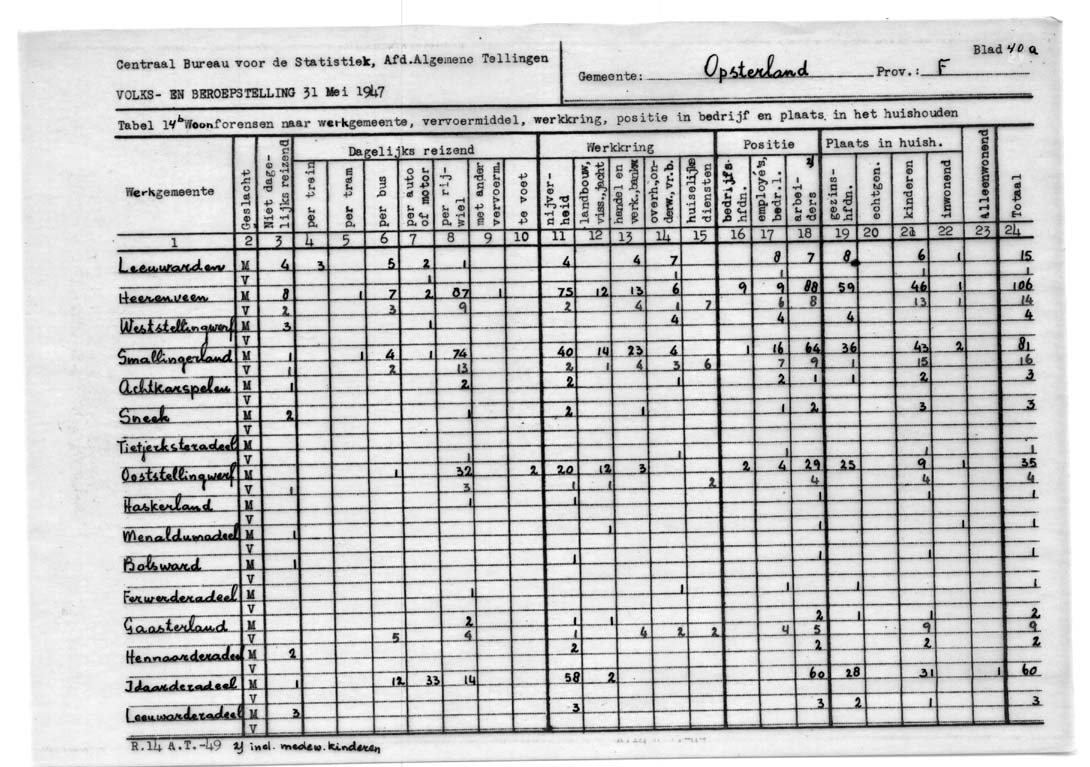 Centraal Bureau voor de Statistiek, Afd.Algemene Tellingen
VOLKS- EN BEROEPSTELLING 31 Mei 1947
Gemeente: Opsterland Prov.: F
Blad 40a
Tabel 14b Woonforensen naar werkgemeente, vervoermiddel, werkkring, positie in bedrijf en plaats in het huishouden
Werkgemeente | Geslacht | Niet dage-lijks reizend | Dagelijks reizend | Werkkring | Positie | Plaats in huish. | Alleenwonend | Totaal
per trein | per tram | per bus | per auto of motor | per rij-wiel | met ander vervoerm. | te voet | nijver-heid | landbouw, viss.,jacht | handel en verk.,bankw | overh,on-derw.,vr.b. | huiselijke diensten | bedrijfs-hfdn. | employé's, bedr.l. | arbei-ders 2) | gezins-hfdn. | echtgen. | kinderen | inwonend
1 2 3 4 5 6 7 8 9 10 11 12 13 14 15 16 17 18 19 20 21 22 23 24
Leeuwarden M 4 3 5 2 1 4 4 7 8 7 8 6 1 15
V 1 1 1 1 1
Heerenveen M 8 1 7 2 87 1 75 12 13 6 9 9 88 59 46 1 106
V 2 3 9 2 4 1 7 6 8 13 1 14
Weststellingwerf M 3 1 4 4 4 4
V
Smallingerland M 1 1 4 1 74 40 14 23 4 1 16 64 36 43 2 81
V 1 2 13 2 1 4 3 6 7 9 1 15 16
Achtkarspelen M 1 2 2 1 2 1 1 2 3
V
Sneek M 2 1 2 1 1 2 3 3
V
Tietjerksteradeel M
V 1 1 1 1 1
Ooststellingwerf M 1 32 2 20 12 3 2 4 29 25 9 1 35
V 1 3 1 1 2 4 4 4
Haskerland M 1 1 1 1 1
V
Menaldumadeel M 1 1 1 1 1
V
Bolsward M 1 1 1 1 1
V
Ferwerderadeel M 1 1 1 1 1
V
Gaasterland M 2 1 1 2 1 1 2
V 5 4 1 4 2 2 4 5 9 9
Hennaarderadeel M 2 2 2 2 2
V
Idaarderadeel M 1 12 33 14 58 2 60 28 31 1 60
V
Leeuwarderadeel M 3 3 3 2 1 3
V
R.14 A.T.-49 2) incl. medew. kinderen